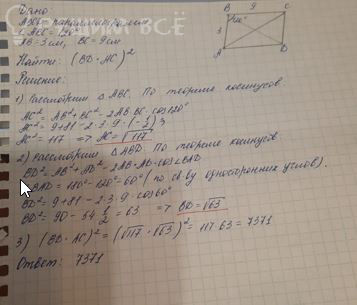 Дано:
ABCD параллелограмм
∠ABC = 120°
AB = 3 см, BC = 9 см
Найти: (BD · AC)²
Решение:
1) Рассмотрим △ ABC. По теореме косинусов.
AC² = AB² + BC² - 2AB · BC · cos 120°
AC² = 9 + 81 - 2 · 3 · 9 · (-1/2)
AC² = 117 => AC = √117
2) Рассмотрим △ ABD. По теореме косинусов.
BD² = AB² + AD² - 2AB · AD · cos∠BAD
∠BAD = 180° - 120° = 60° (по св-ву односторонних углов).
BD² = 9 + 81 - 2 · 3 · 9 · cos 60°
BD² = 90 - 54 · 1/2 = 63 => BD = √63
3) (BD · AC)² = (√117 · √63)² = 117 · 63 = 7371
Ответ: 7371
B 9 C
120°
3
A D